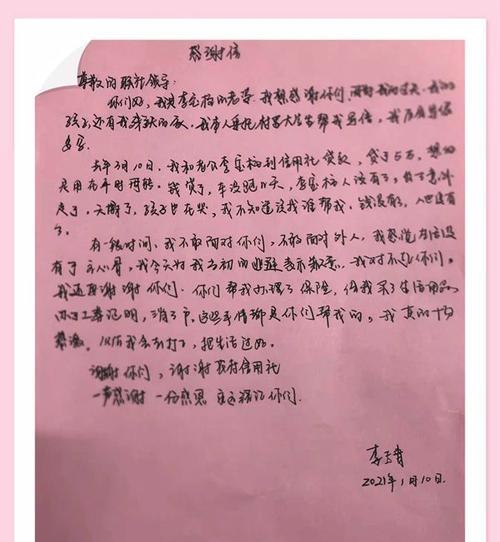 感谢信
尊敬的联社领导:
你们好,我是李金福的老婆,我想感谢你们,因为我的丈夫,我的
孩子,还有我年轻的家,我本人委托村里大学生帮我写信,我
去年3月10日,我和老公李金福到信用社贷款,贷了5万,想的
是用在车的周转。钱贷了,车没跑几天,李金福人没有了,
走了,天塌了,孩子也在哭,我不知道该找谁帮我,钱没有了,人也没有
了。
有一段时间,我不敢面对你们,不敢面对外人,我感觉生活没
有了主心骨,我今天为我当初的逃避表示歉意,我对不起你们。
我还要谢谢你们,你们帮我办理了保险,给我买了生活用品,
办了工亡证明,消了户,这些事情都是你们帮我的,我真的十分
感谢。以后我会去打工,把生活过好。
谢谢你们,谢谢农村信用社
一声感谢 一份感恩 永远铭记你们.
2021年1月10日.